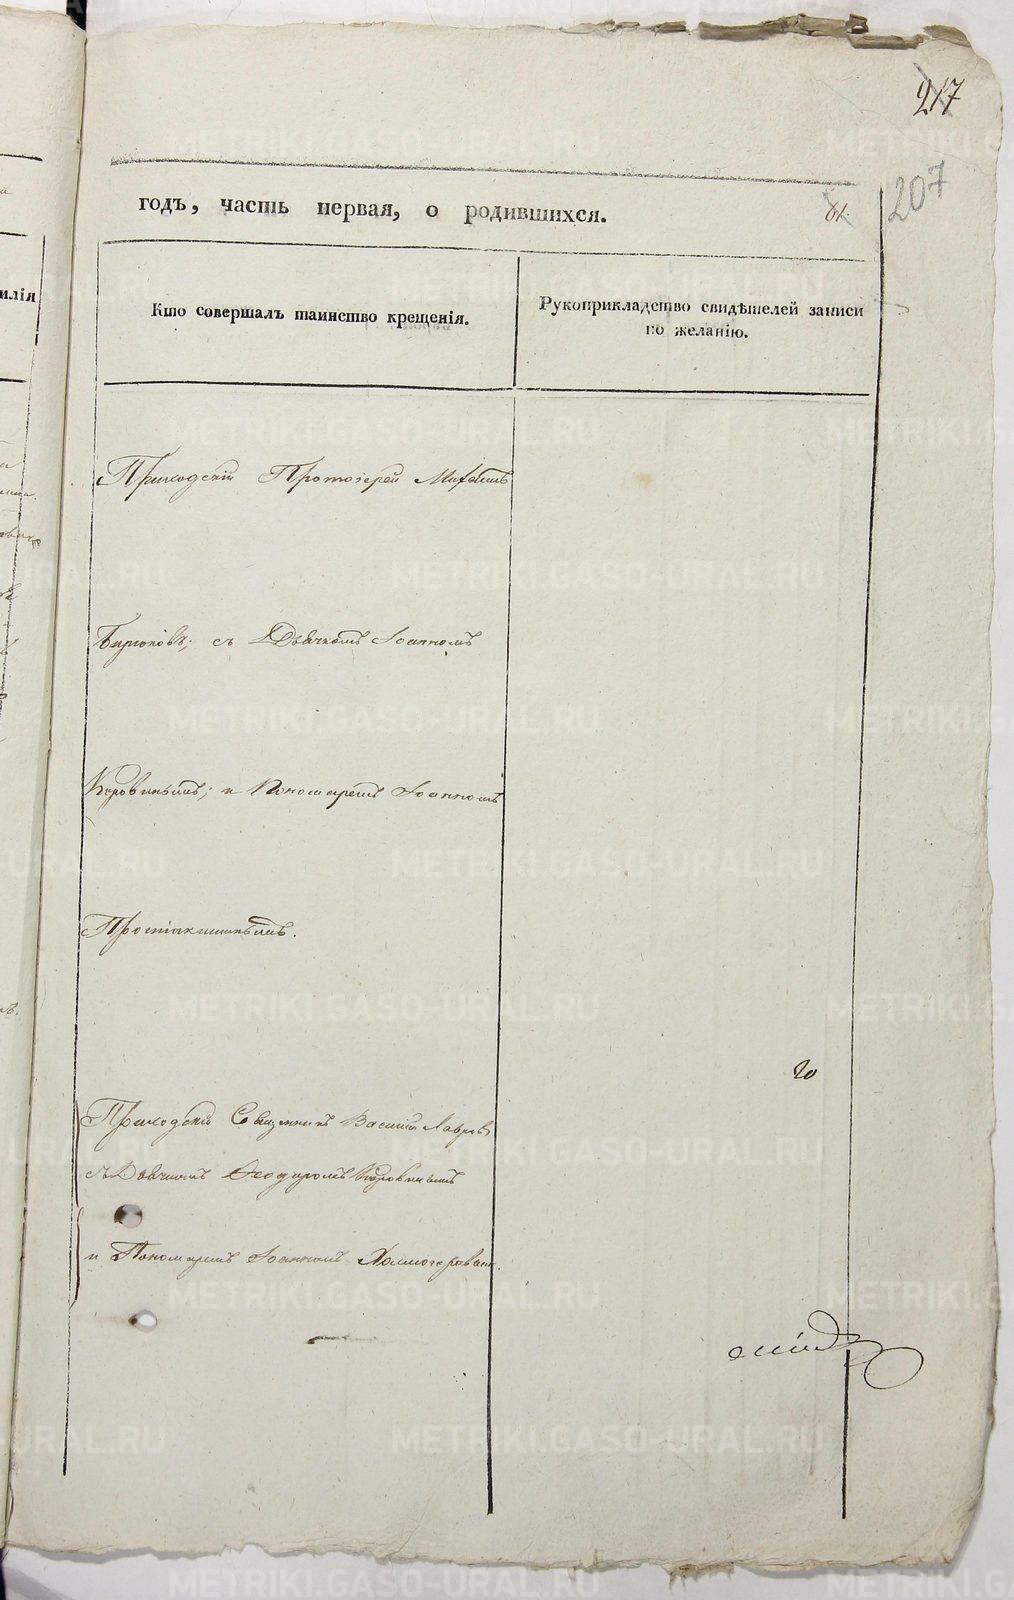 217
207
годъ, часть первая, о родившихся.
61.
Кто совершалъ таинство крещенія.
Рукоприкладство свидѣтелей записи
по желанію.
илія
Приходскій Протоіерей Михаилъ
Бирюковъ; съ Дьячкомъ Іоанномъ
Коровинымъ; и Пономаремъ Іоанномъ
Приходскій Священникъ Василій Лавровъ
съ Дьячкомъ Ѳеодоромъ Коровинымъ
и Пономаремъ Іоанномъ Холмогоровымъ.
METRIKI.GASO-URAL.RU